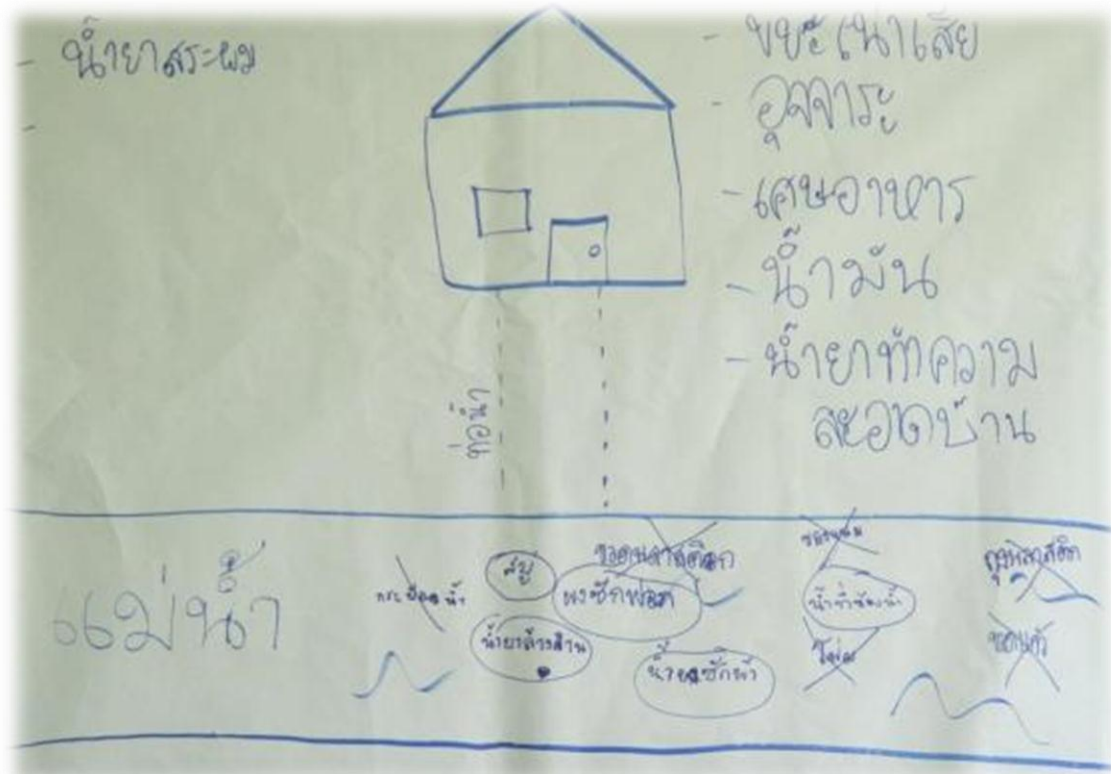 - น้ำยาสระผม
-
- ขยะเน่าเสีย
- อุจจาระ
- เศษอาหาร
- น้ำมัน
- น้ำยาทำความ
สะอาดบ้าน
ท่อน้ำ
แม่น้ำ
กระป๋องน้ำ
สบู่
ขวดพลาสติก
ผงซักฟอก
น้ำยาล้างจาน
น้ำยาซักผ้า
ซองขนม
โฟม
ถุงพลาสติก
ขวดแก้ว